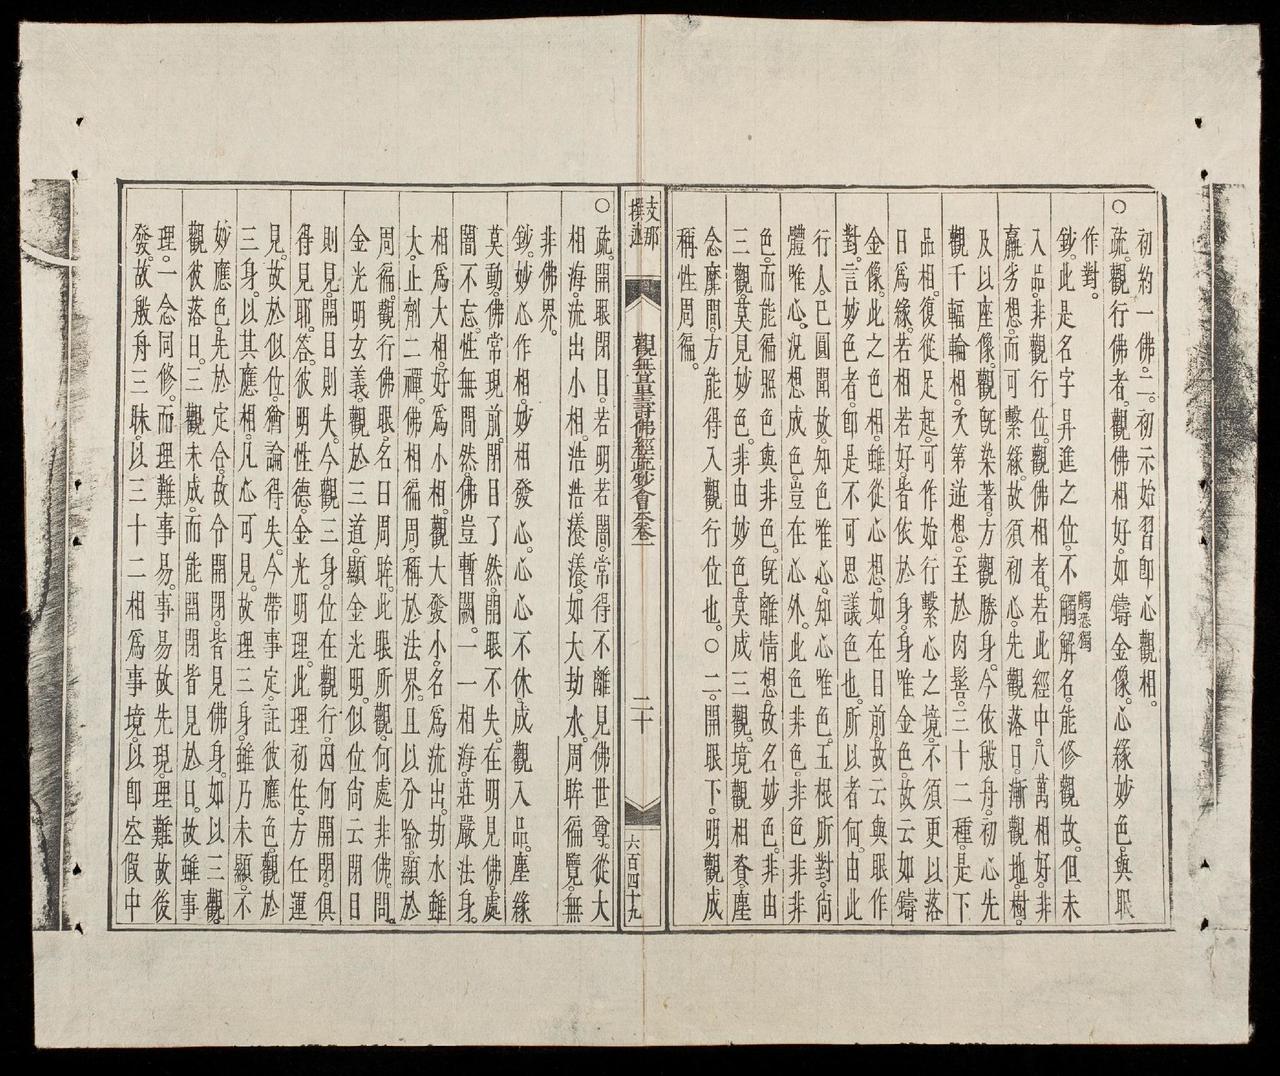 初約一佛二。初示始習即心觀相。
○疏。觀行佛者。觀佛相好。如鑄金像。心緣妙色。與眼
作對。
鈔。此是名字昇進之位。不觸觸恐獨解名。能修觀故。但未
入品。非觀行位。觀佛相者。若此經中。八萬相好。非
羸劣想。而可繫緣。故須初心。先觀落日。漸觀地。樹。
及以座。像。觀既染著。方觀勝身。今依般舟。初心先
觀千輻輪相。次第逆想。至於肉髻。三十二種。是下
品相。復從足起。可作始行。繫心之境。不須更以落
日為緣。若相若好。皆依於身。身唯金色。故云如鑄
金像。此之色相。雖從心想。如在目前。故云與眼作
對。言妙色者。即是不可思議色也。所以者何。由此
行人。已圓聞故。知色唯心。知心唯色。五根所對。尚
體唯心。況想成色。豈在心外。此色非色。非色非非
色。而能徧照色與非色。既離情想。故名妙色。非由
三觀。莫見妙色。非由妙色。莫成三觀。境觀相資。塵
念靡間。方能得入觀行位也。○二。開眼下。明觀成
稱性周徧。
支那
撰述
觀無量壽佛經疏鈔會本卷一
二十
六百四十九
○疏。開眼閉目。若明若闇。常得不離見佛世尊。從大
相海。流出小相。浩浩瀁瀁。如大劫水。周眸徧覽。無
非佛界。
鈔。妙心作相。妙相發心。心心不休。成觀入品。塵緣
莫動。佛常現前。閉目了然。開眼不失。在明見佛。處
闇不忘。性無間然。佛豈暫闕。一一相海。莊嚴法身。
相為大相。好為小相。觀大發小。名為流出。劫水雖
大。止劑二禪。佛相徧周。稱於法界。且以分喻。顯於
周徧。觀行佛眼。名曰周眸。此眼所觀。何處非佛。問。
金光明玄義。觀於三道。顯金光明。似位尚云閉目
則見。開目則失。今觀三身。位在觀行。因何開閉。俱
得見耶。答。彼明性德。金光明理。此理初住。方任運
見。故於似位。猶論得失。今帶事定。託彼應色。觀於
三身。以其應相。凡心可見。故理三身。雖乃未顯。不
妙應色。先於定合。故令開閉。皆見佛身。如以三觀。
觀彼落日。三觀未成。而能開閉皆見於日。故雖事
理。一念同修。而理難事易。事易故先現。理難故後
發。故般舟三昧。以三十二相為事境。以即空假中